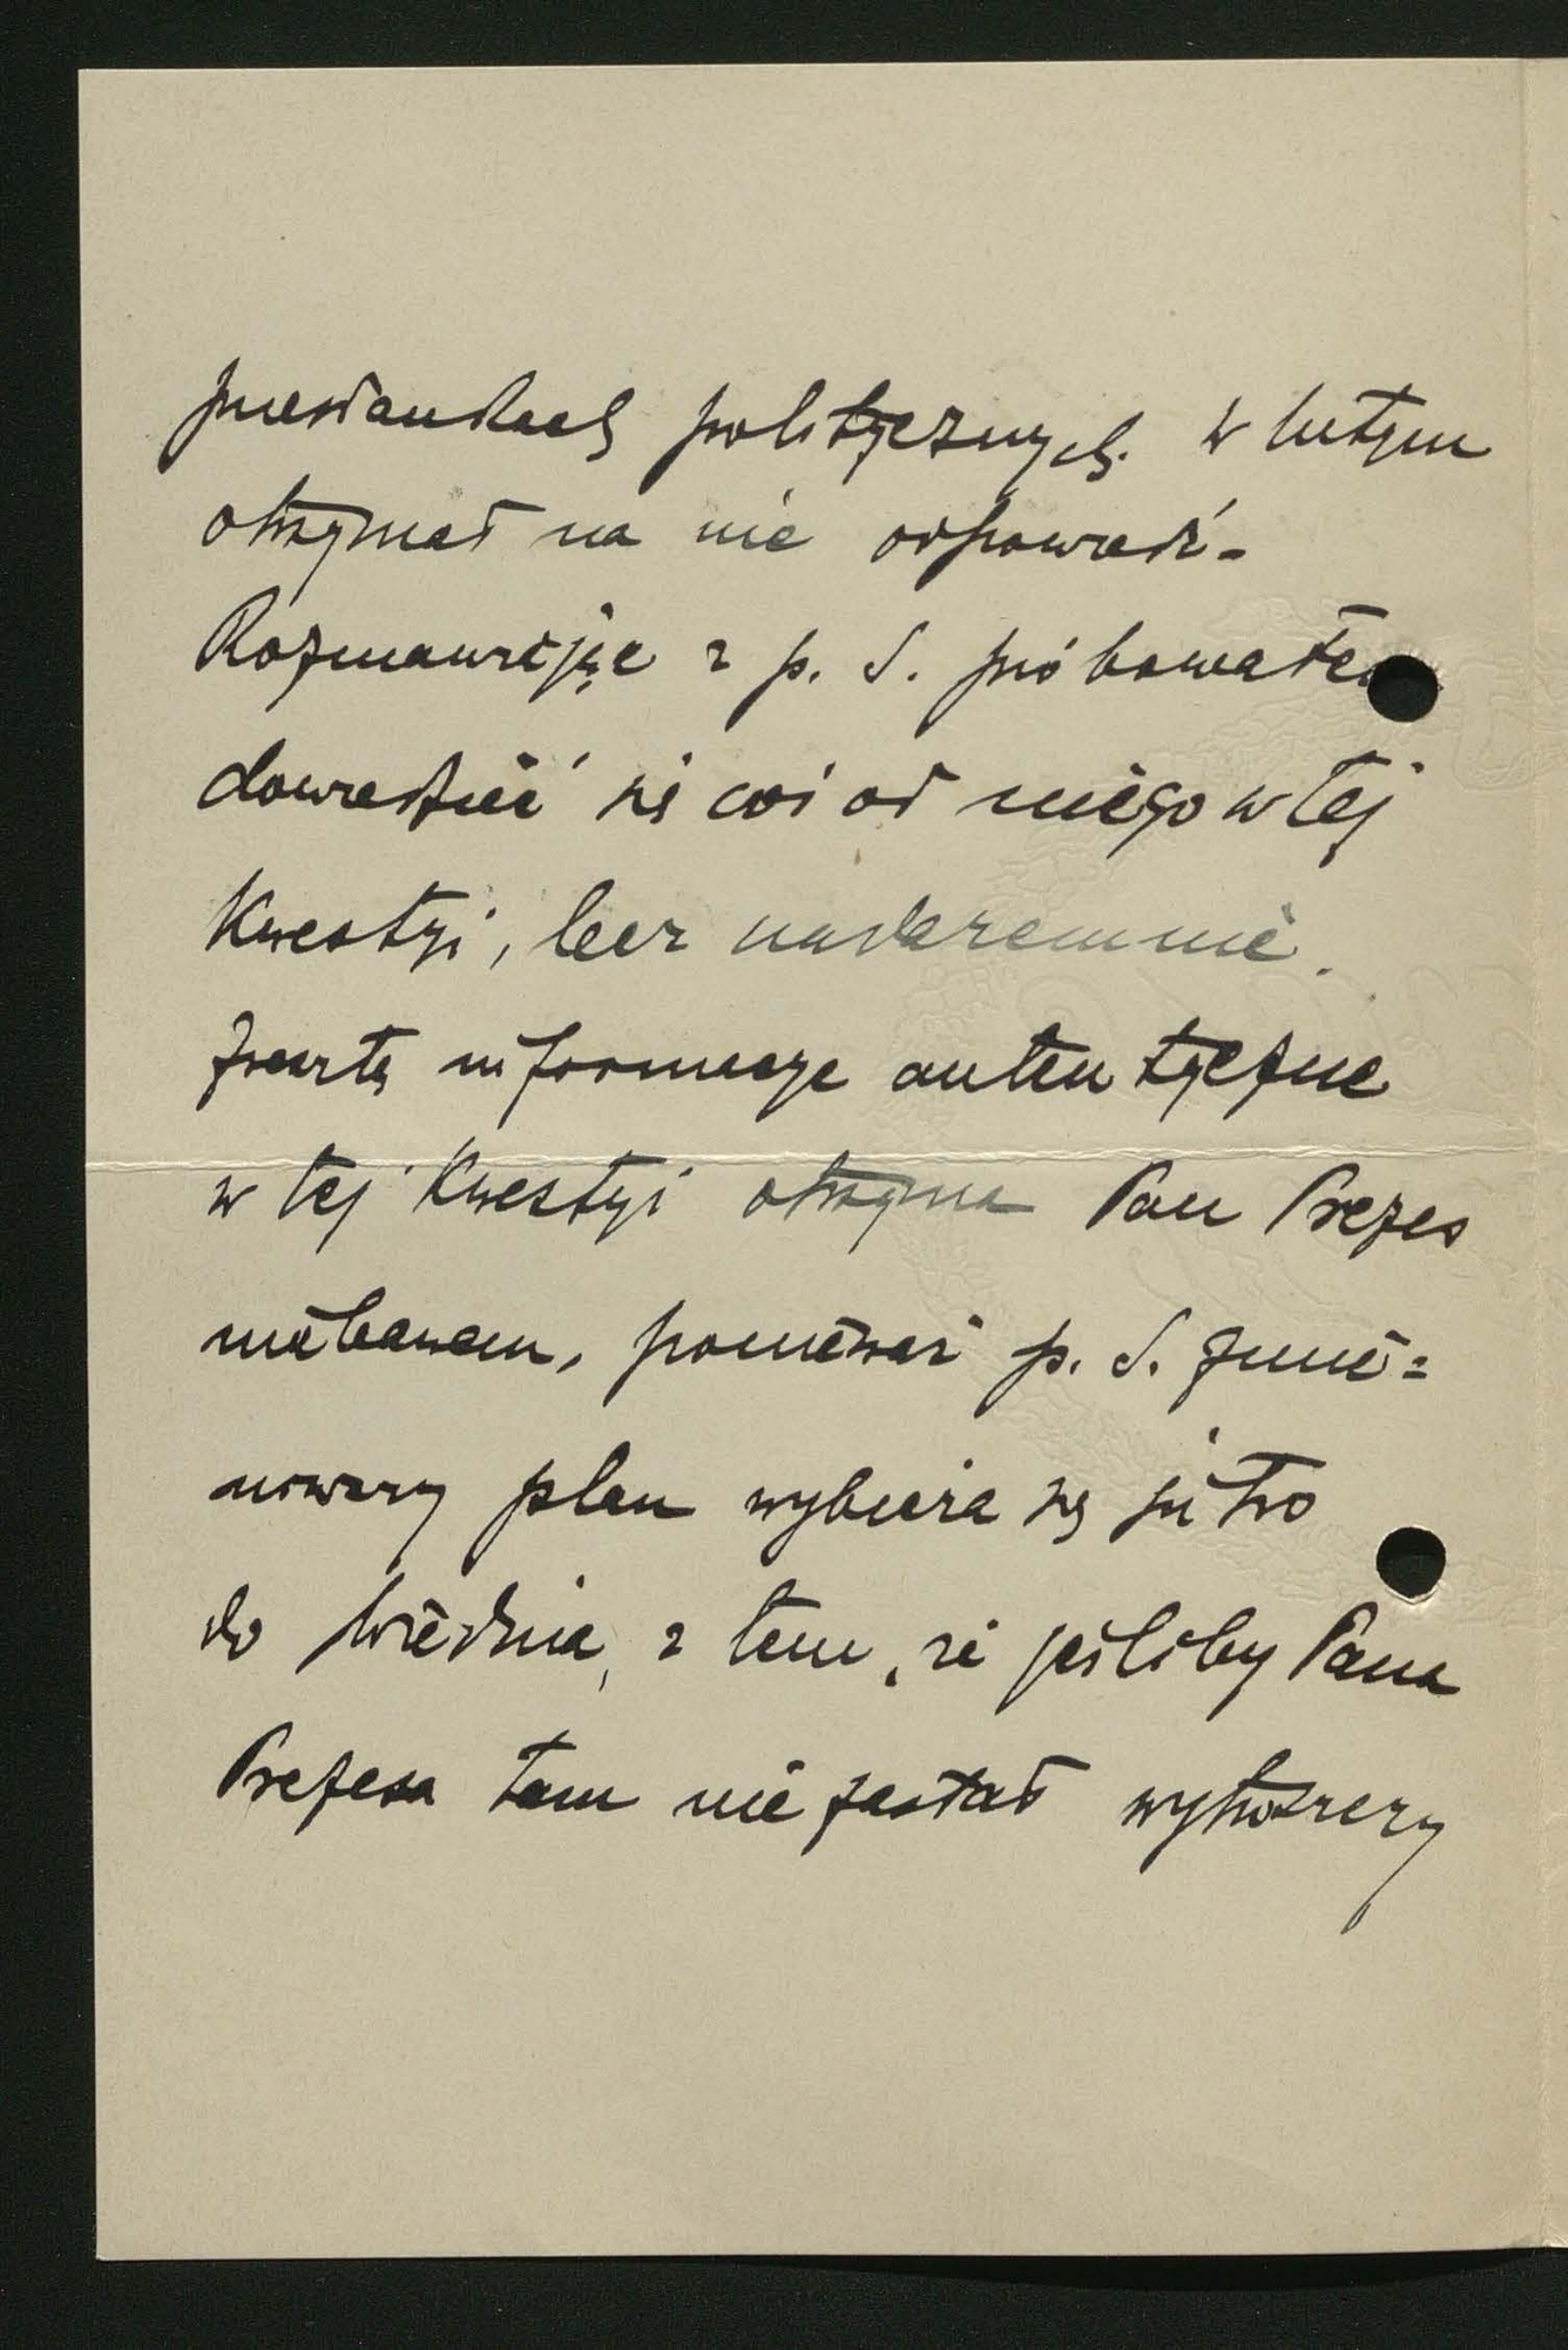 przesłankach politycznych. W lutym
otrzymał na nie odpowiedź -
Rozmawiając z p. S. próbowałem
dowiedzieć się coś od niego w tej
kwestyi, lecz nadaremnie.
Zresztą informacye autentyczne
w tej kwestyi otrzyma Pan Prezes
niebawem, ponieważ p. S. zmie=
niwszy plan wybiera się jutro
do Wiednia, z tem, że jeśliby Pana
Prezesa tam nie zastał wytoczy